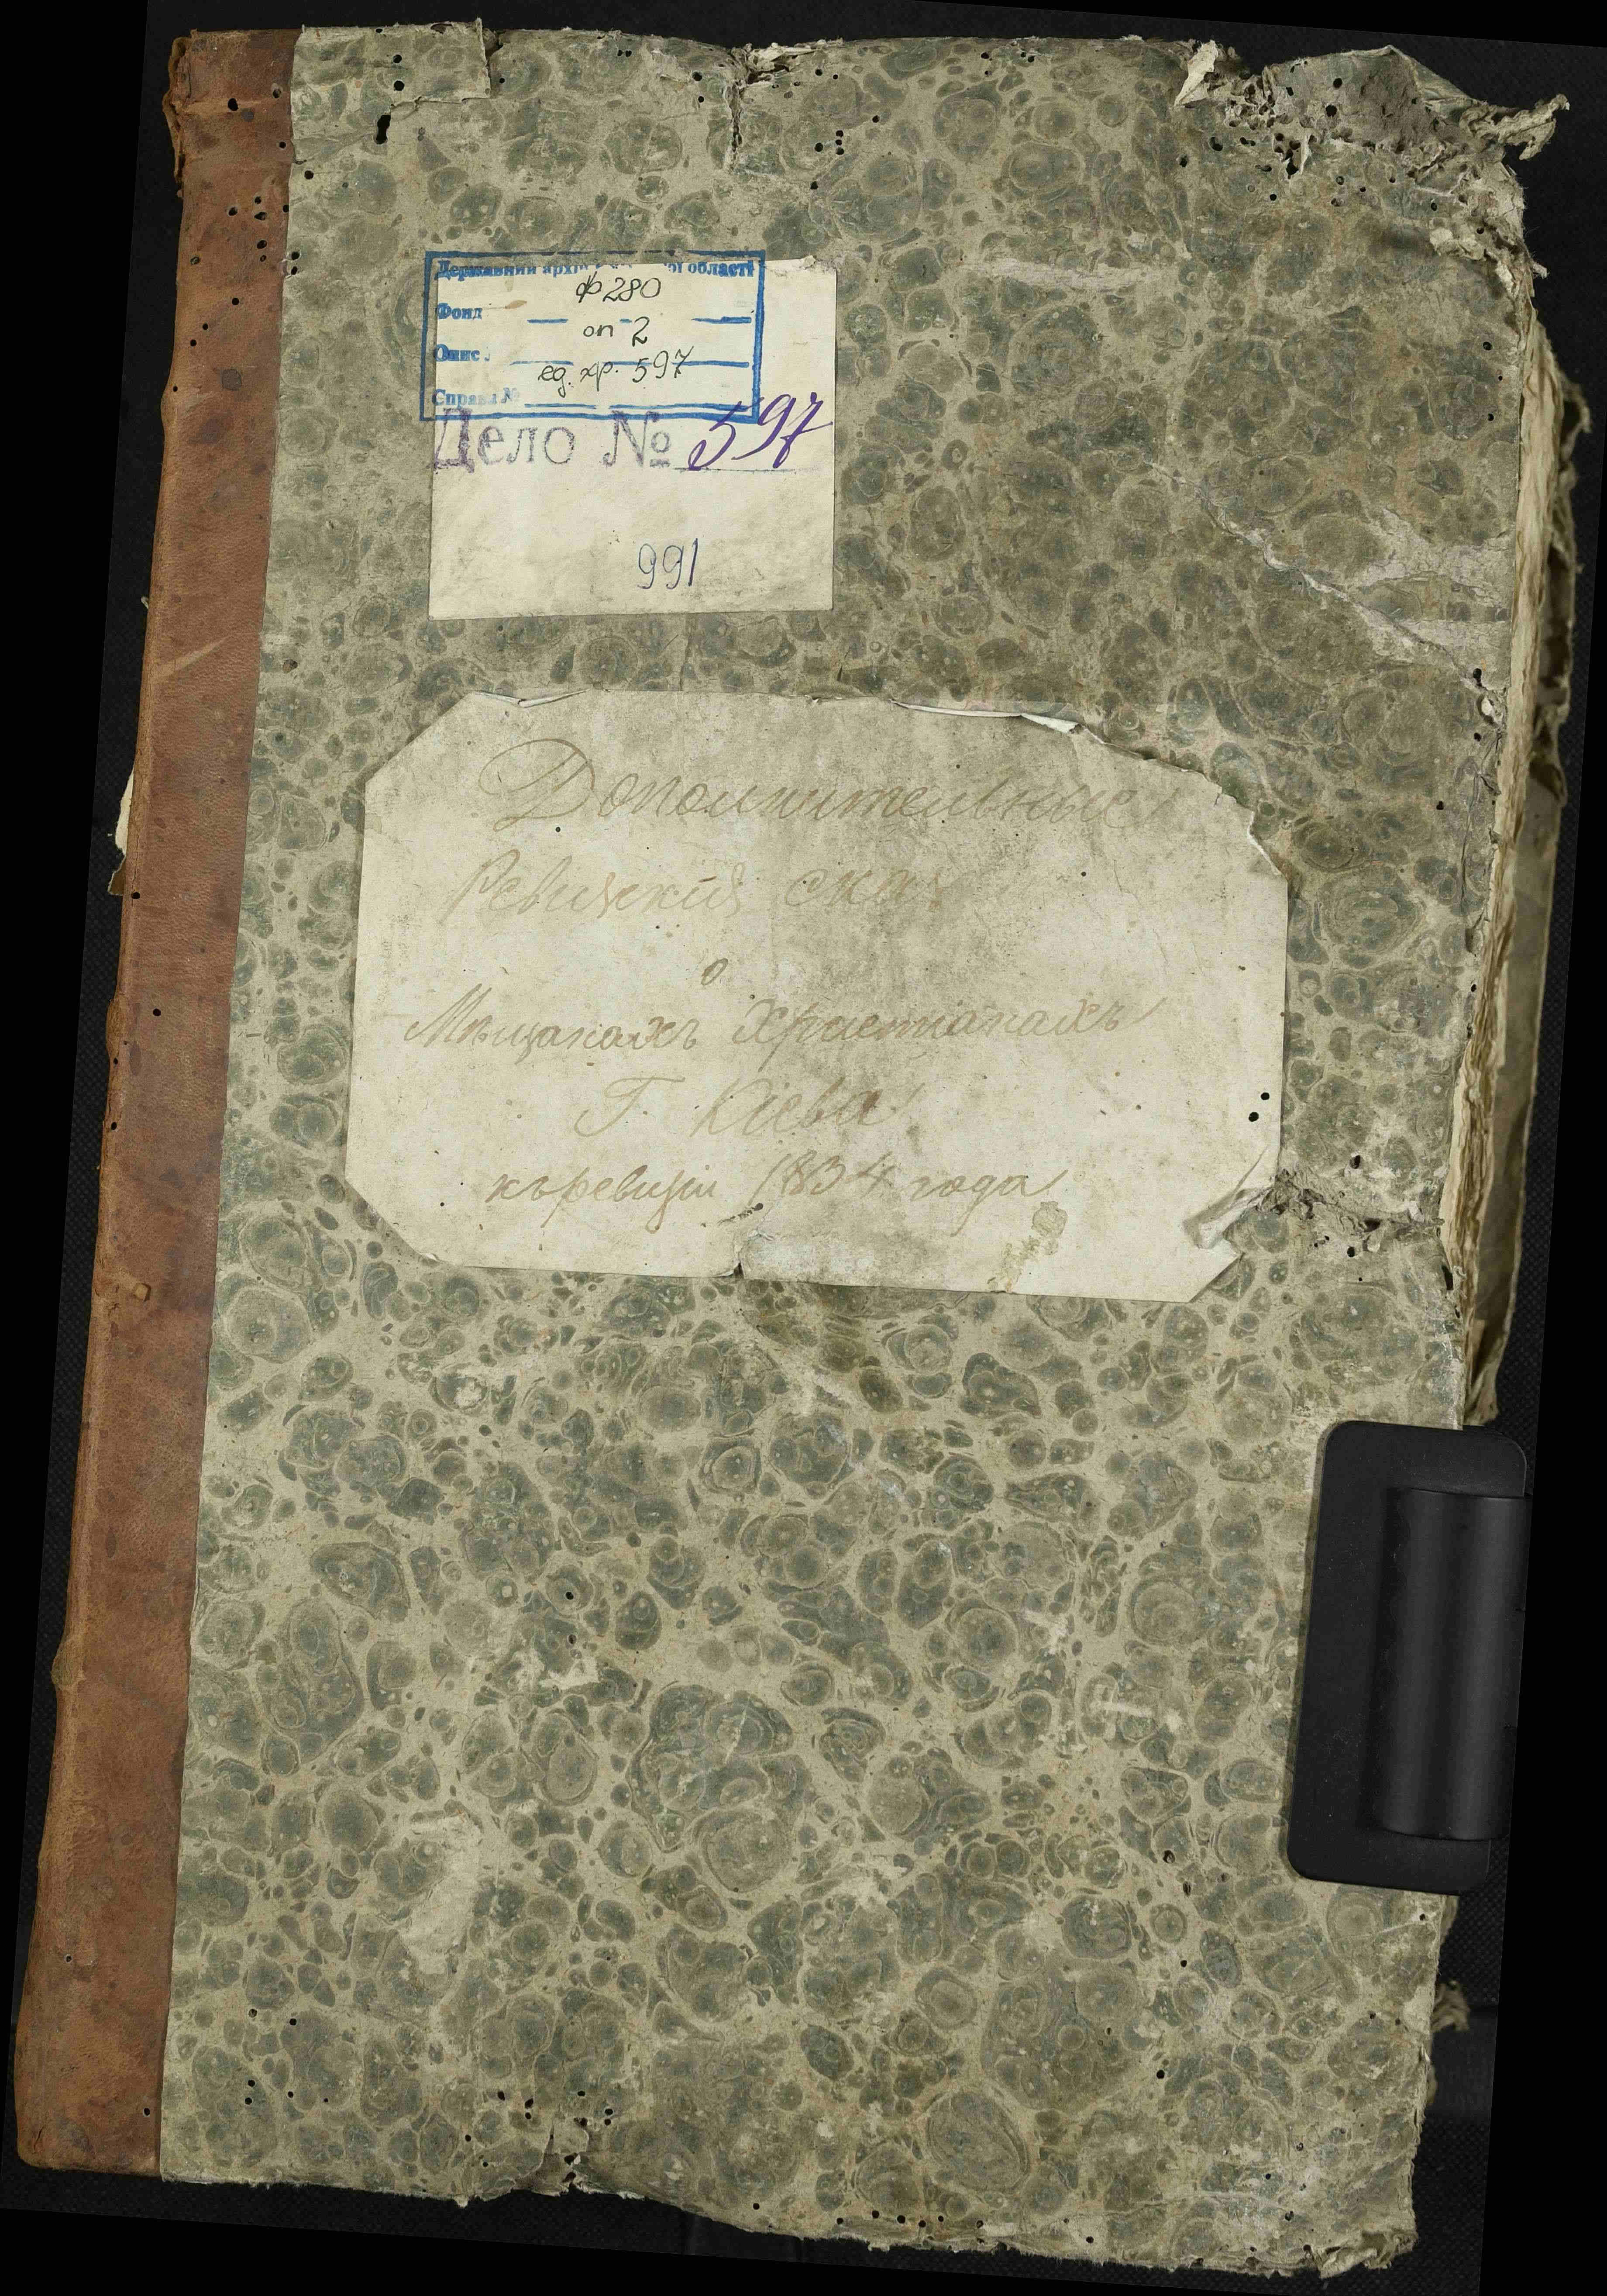 Державний архі ої області
Фонд ф 280
Опис оп 2
Справа № ед. хр. 597
Дело № 597
991
Дополнительные
Ревизкія ска
о
Мѣщанахъ Христіанахъ
Г. Кіева
къ ревизіи 1834 года